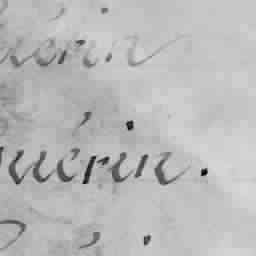 uérin
uérin.